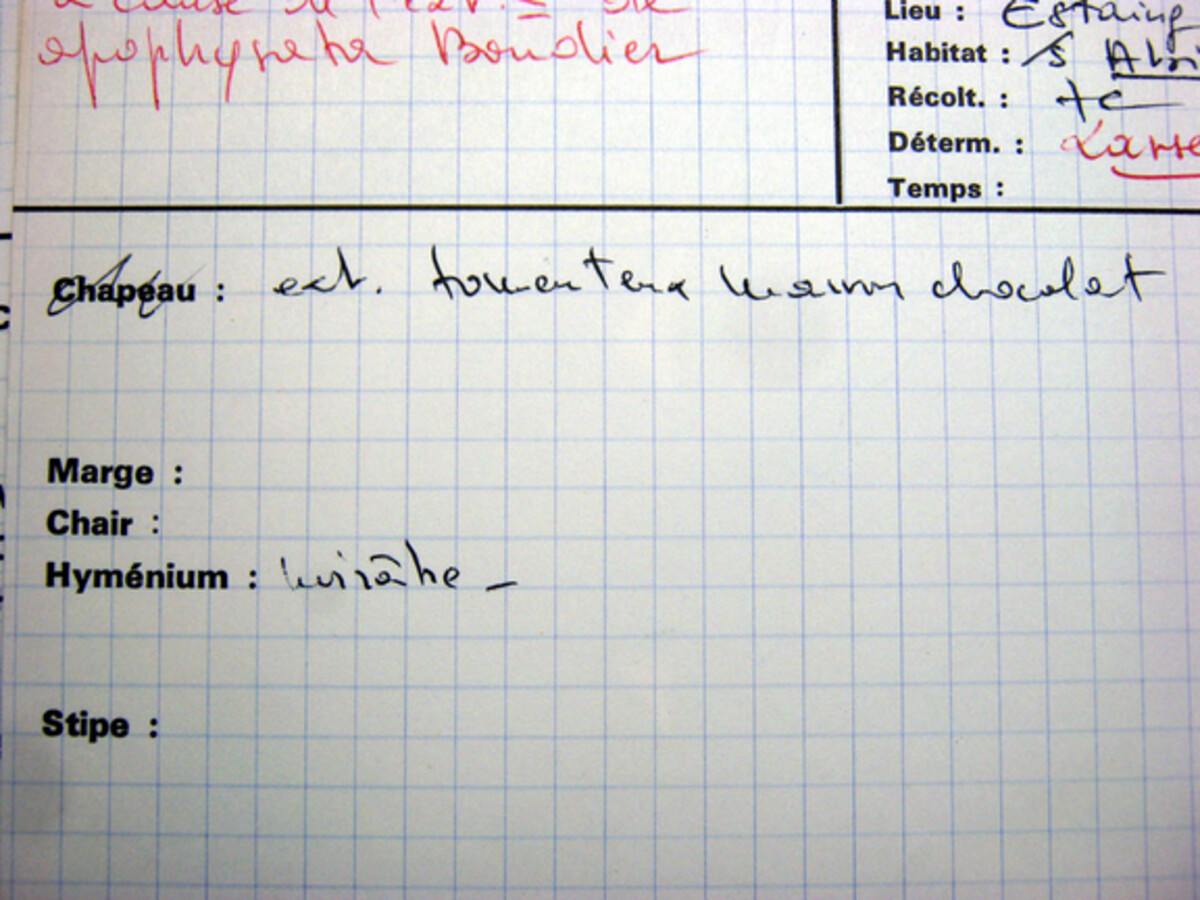 à cause de l'ext. = de
apophysata Boudier
Lieu : Estaing
Habitat : /s Abi
Récolt. : +c
Déterm. : Larse
Temps :
Chapeau : ext. tomenteux marron chocolat
Marge :
Chair :
Hyménium : noirâtre –
Stipe :